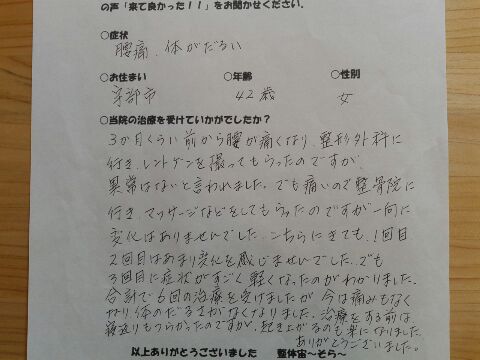 の声「来て良かった！！」をお聞かせください.
○症状
腰痛、体がだるい
○お住まい ○年齢 ○性別
宇部市 42歳 女
○当院の治療を受けていかがでしたか？
3か月くらい前から腰が痛くなり、整形外科に
行き、レントゲンを撮ってもらったのですが、
異常はないと言われました。でも痛いので整骨院に
行き、マッサージなどをしてもらったのですが一向に
変化はありませんでした。こちらにきても、1回目
2回目はあまり変化を感じませんでした。でも
3回目に症状がすごく軽くなったのがわかりました。
合計で6回の治療を受けましたが 今は痛みもなく
なり体のだるさがなくなりました。治療をする前は
寝返りもつらかったのですが、起き上がるのも楽になりました。
ありがとうございました。
以上ありがとうございました 整体宙～そら～